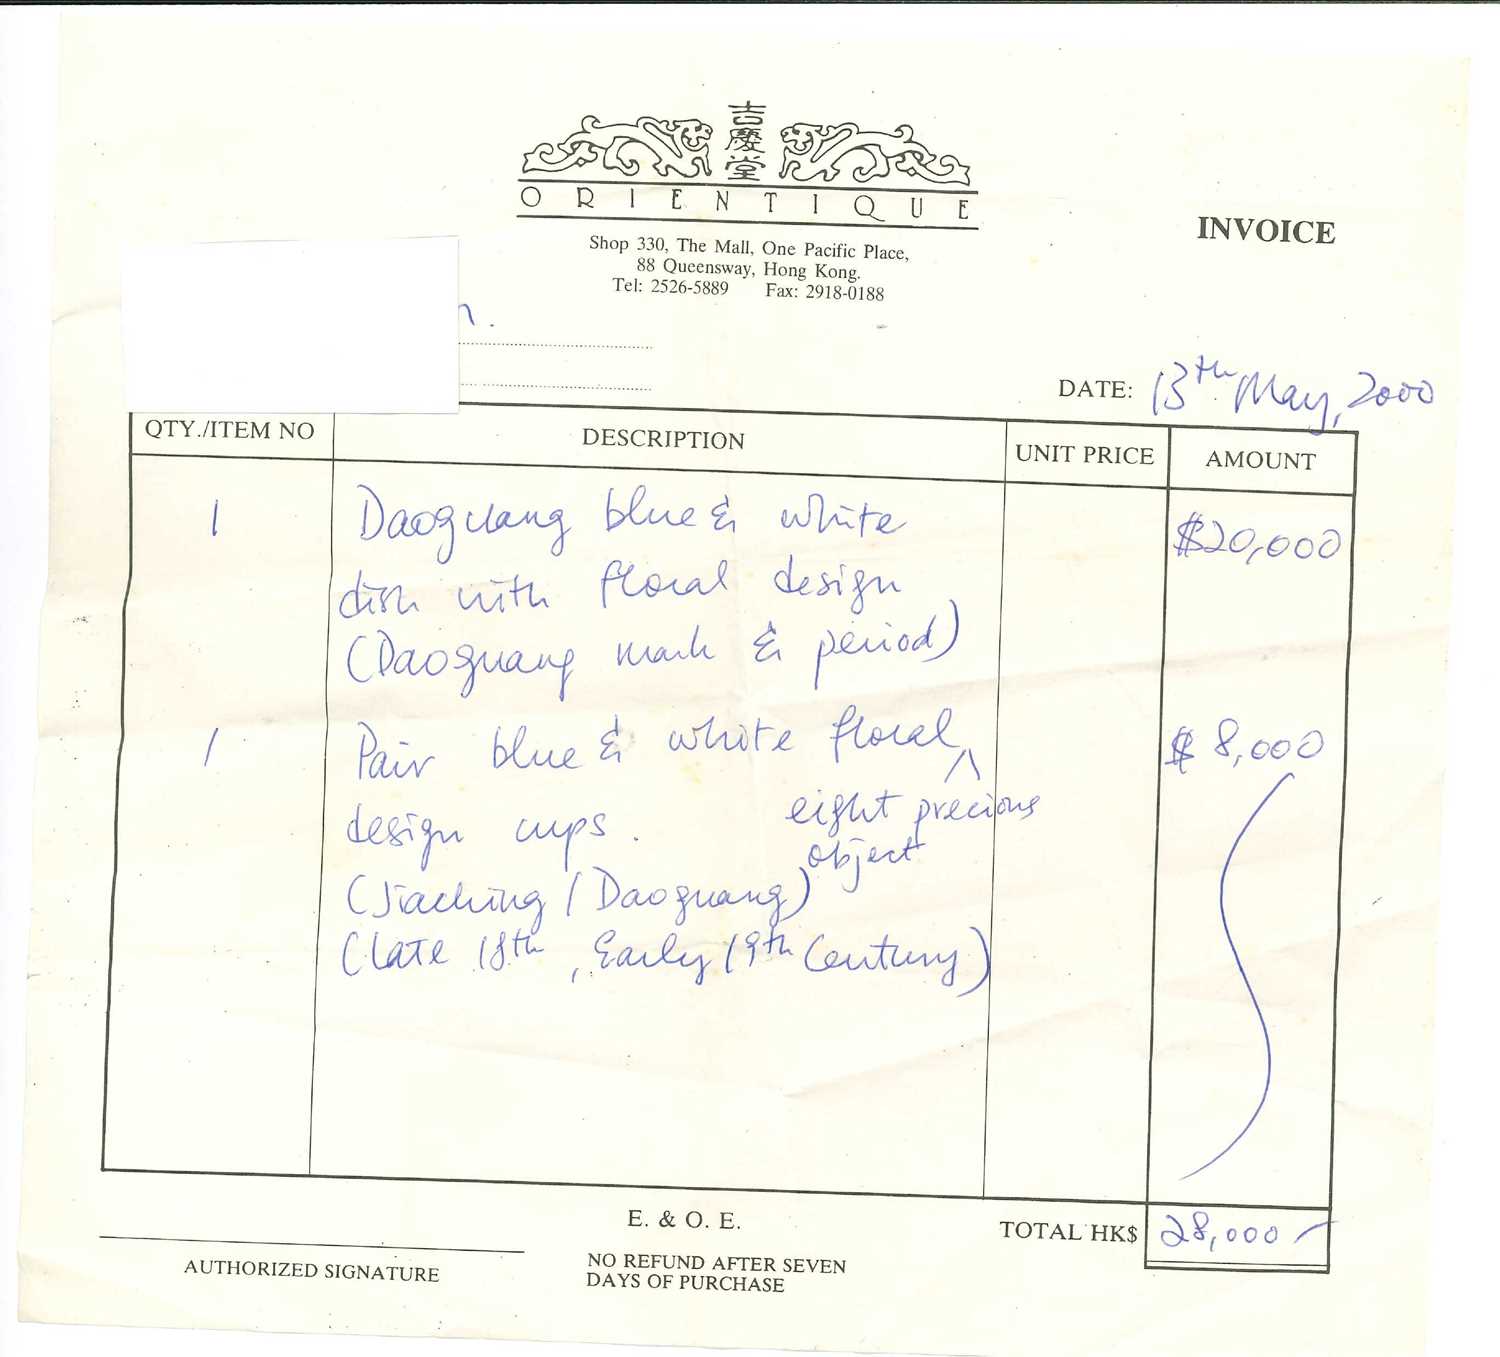 吉慶堂
ORIENTIQUE
Shop 330, The Mall, One Pacific Place,
88 Queensway, Hong Kong.
Tel: 2526-5889 Fax: 2918-0188
INVOICE
DATE: 13th May, 2000
QTY./ITEM NO DESCRIPTION UNIT PRICE AMOUNT
1 Daoguang blue & white $20,000
dish with floral design
(Daoguang mark & period)
1 Pair blue & white floral $8,000
eight precious
design cups.
object
(Jiaching / Daoguang)
(Late 18th, Early 19th Century)
E. & O. E.
TOTAL HK$ 28,000
AUTHORIZED SIGNATURE
NO REFUND AFTER SEVEN
DAYS OF PURCHASE